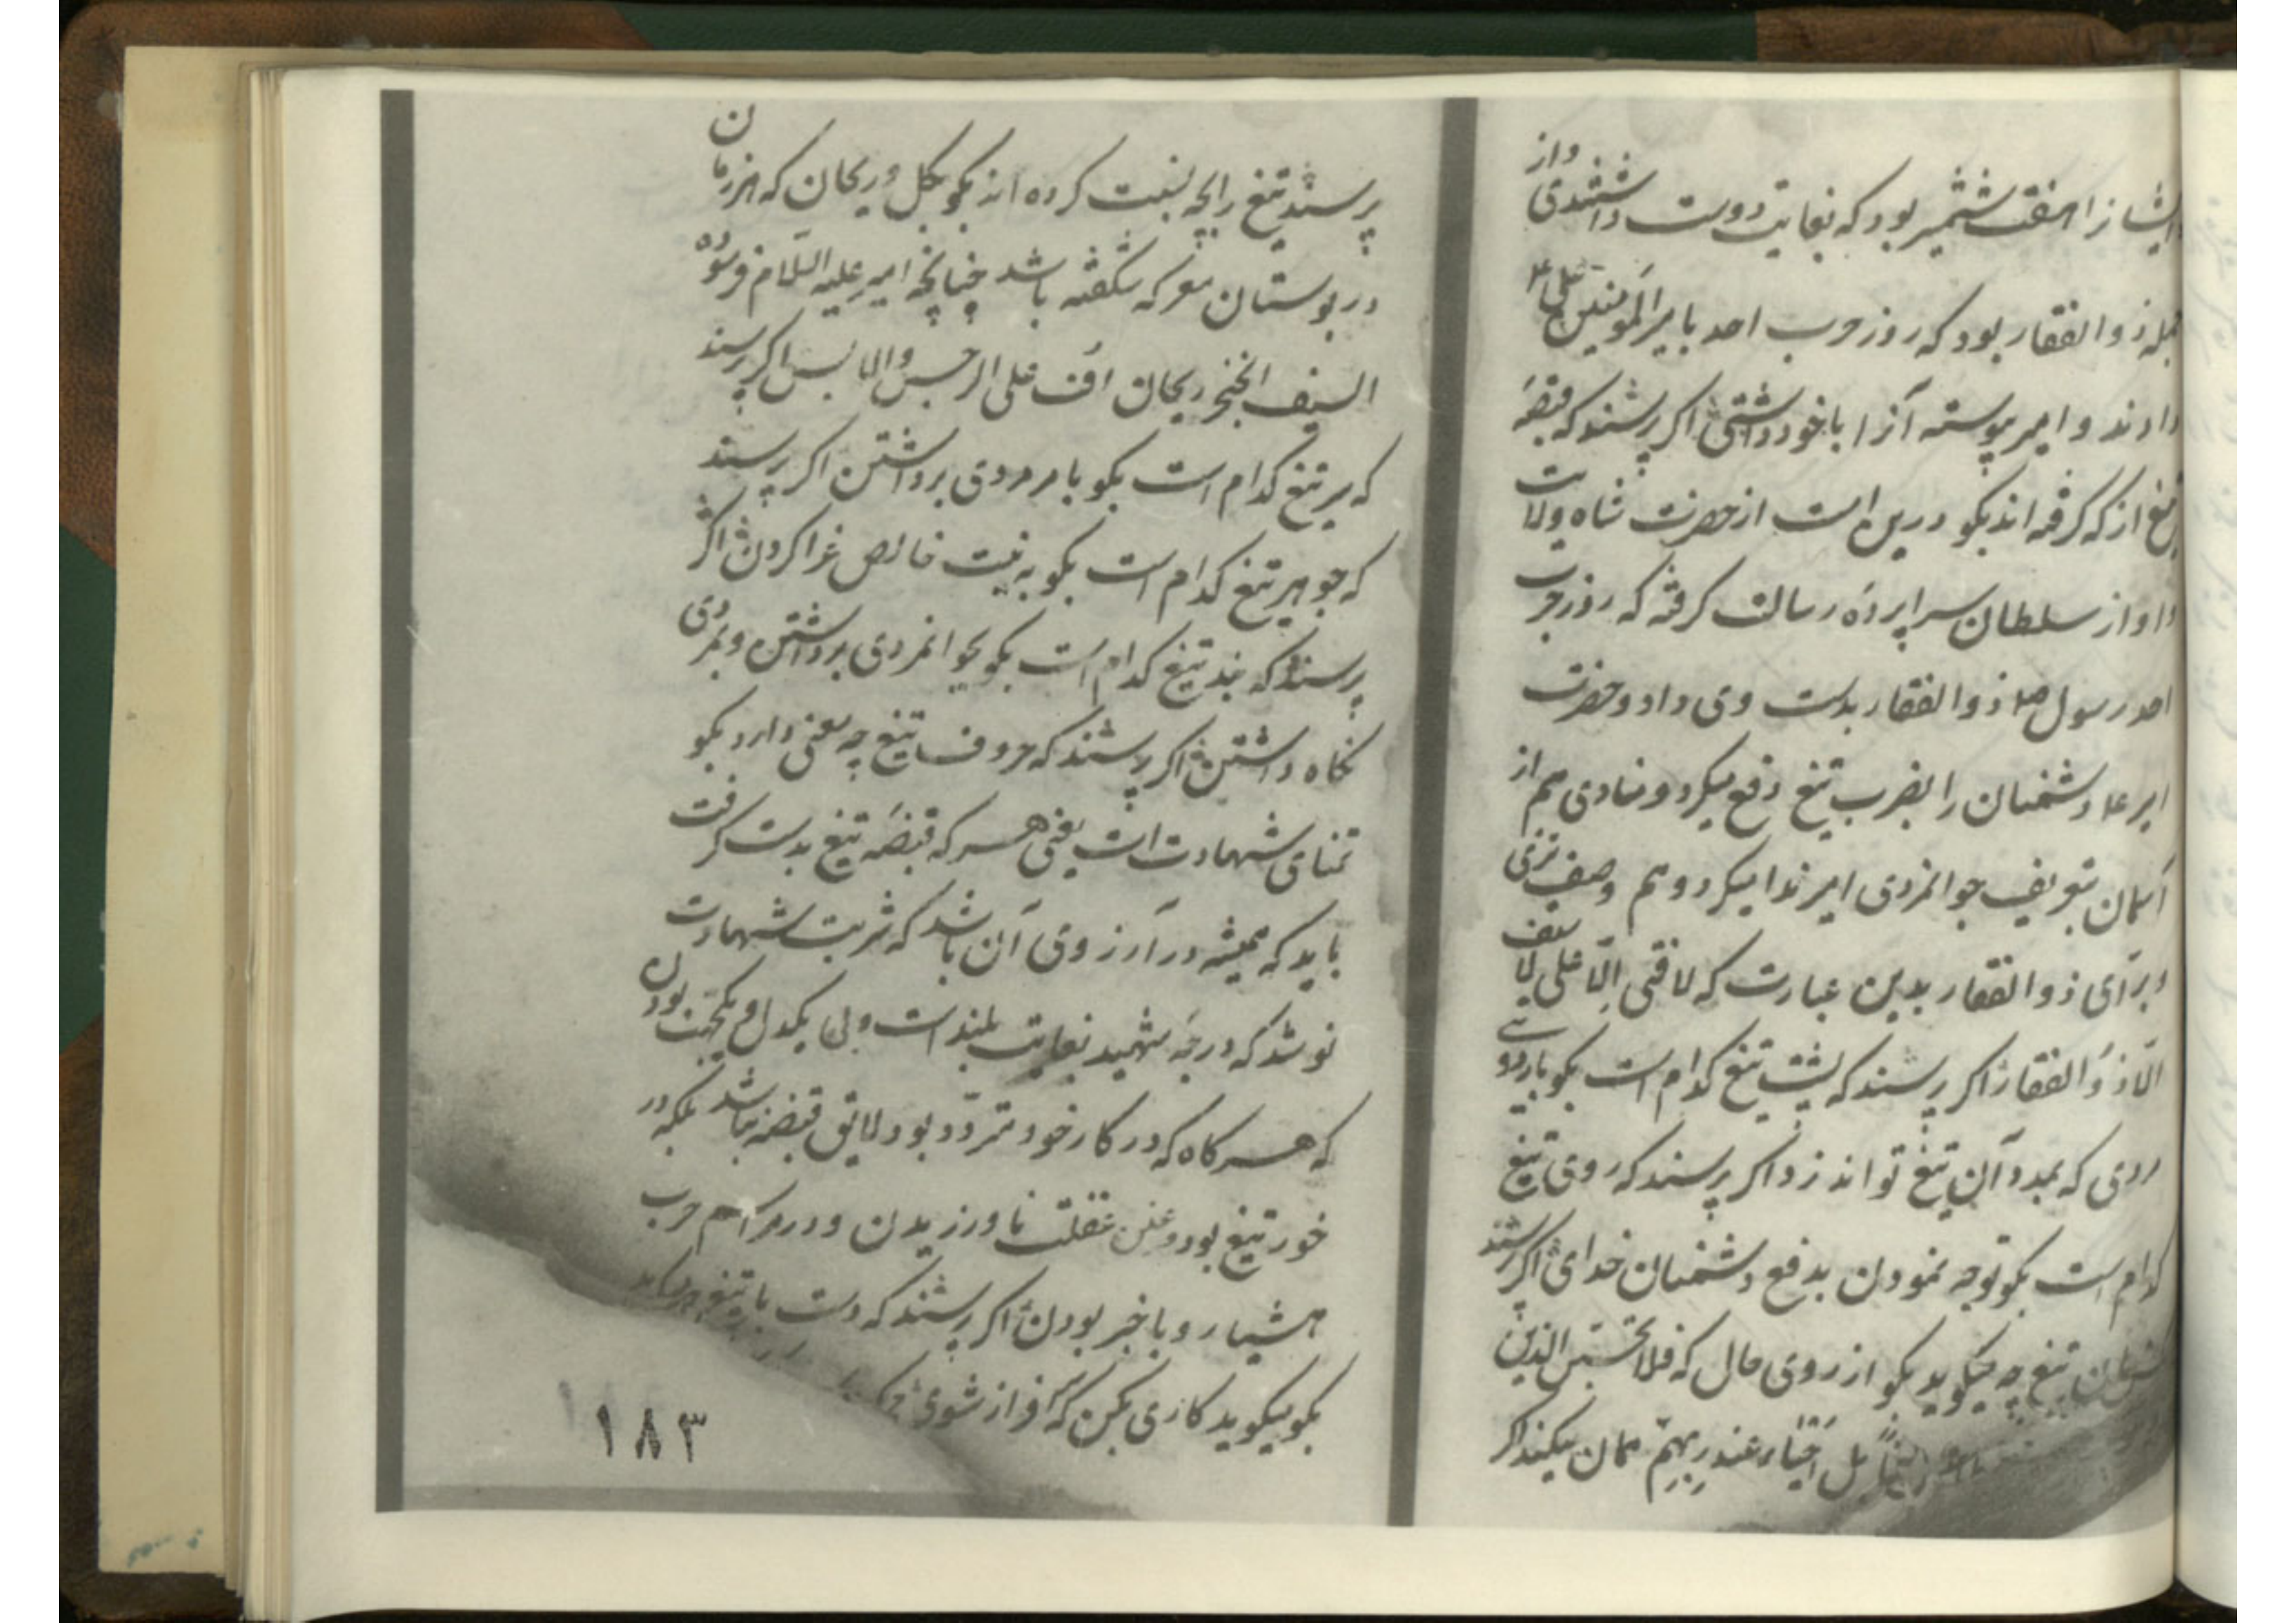 ایشانرا هفت شمشیر بود که بغایت دوست داشتندی واز
جمله ذوالفقار بود که روز حرب احد بامیرالمؤمنین علی ع
دادند و امیر پیوسته آنرا باخود داشتی اکر پرسند که قبضهٔ
تیغ از که کرفته اند بکو درین است از حضرت شاه ولایت
و او از سلطان سراپردهٔ رسالت کرفته که روز حرب
احد رسول صلعم ذوالفقار بدست وی داد و حضرت
امیر ع دشمنان را بضرب تیغ دفع میکرد و منادی هم از
آسمان بتعریف جوانمردی امیر ندا میکرد و هم وصف تیزی
و برّای ذوالفقار بدین عبارت که لا فتی الّا علی لا سیف
الّا ذوالفقار اکر پرسند که پشت تیغ کدام است بکو بازوی
مردی که بمدد آن تیغ تواند زد اکر پرسند که روی تیغ
کدام است بکو توجه نمودن بدفع دشمنان خدای اکر پرسند
که زبان تیغ چه میکوید بکو از روی حال که فلا تحسبن الذین
بل احیاء عند ربهم همان میکند اکر
پرسند تیغ را بچه نسبت کرده اند بکو بکل و ریحان که هر زمان
در بوستان معرکه شکفته باشد چنانچه امیر علیه السلام فرموده
السیف الخنجر ریحان اف علی النرجس والاس اکر پرسند
که سر تیغ کدام است بکو بامر مردی برداشتن اکر پرسند
که جوهر تیغ کدام است بکو به نیت خالص غزا کردن اکر
پرسند که بند تیغ کدام است بکو بجوانمردی برداشتن و بمردی
نکاه داشتن اکر پرسند که حروف تیغ چه معنی دارد بکو
تمنای شهادت است یعنی هر که قبضهٔ تیغ بدست کرفت
باید که همیشه در آرزوی آن باشد که شربت شهادت
نوشد که درجهٔ شهید بغایت بلند است ولی یکدل و یکجهت بودن
که هرکاه که در کار خود متردّد بود لایق قبضه نباشد بلکه در
خور تیغ بود و غین غفلت نا ورزیدن و در مراسم حرب
هشیار و باخبر بودن اکر پرسند که دست با تیغ چه میکوید
بکو میکوید کاری بکن که سرافراز شوی
۱۸۳